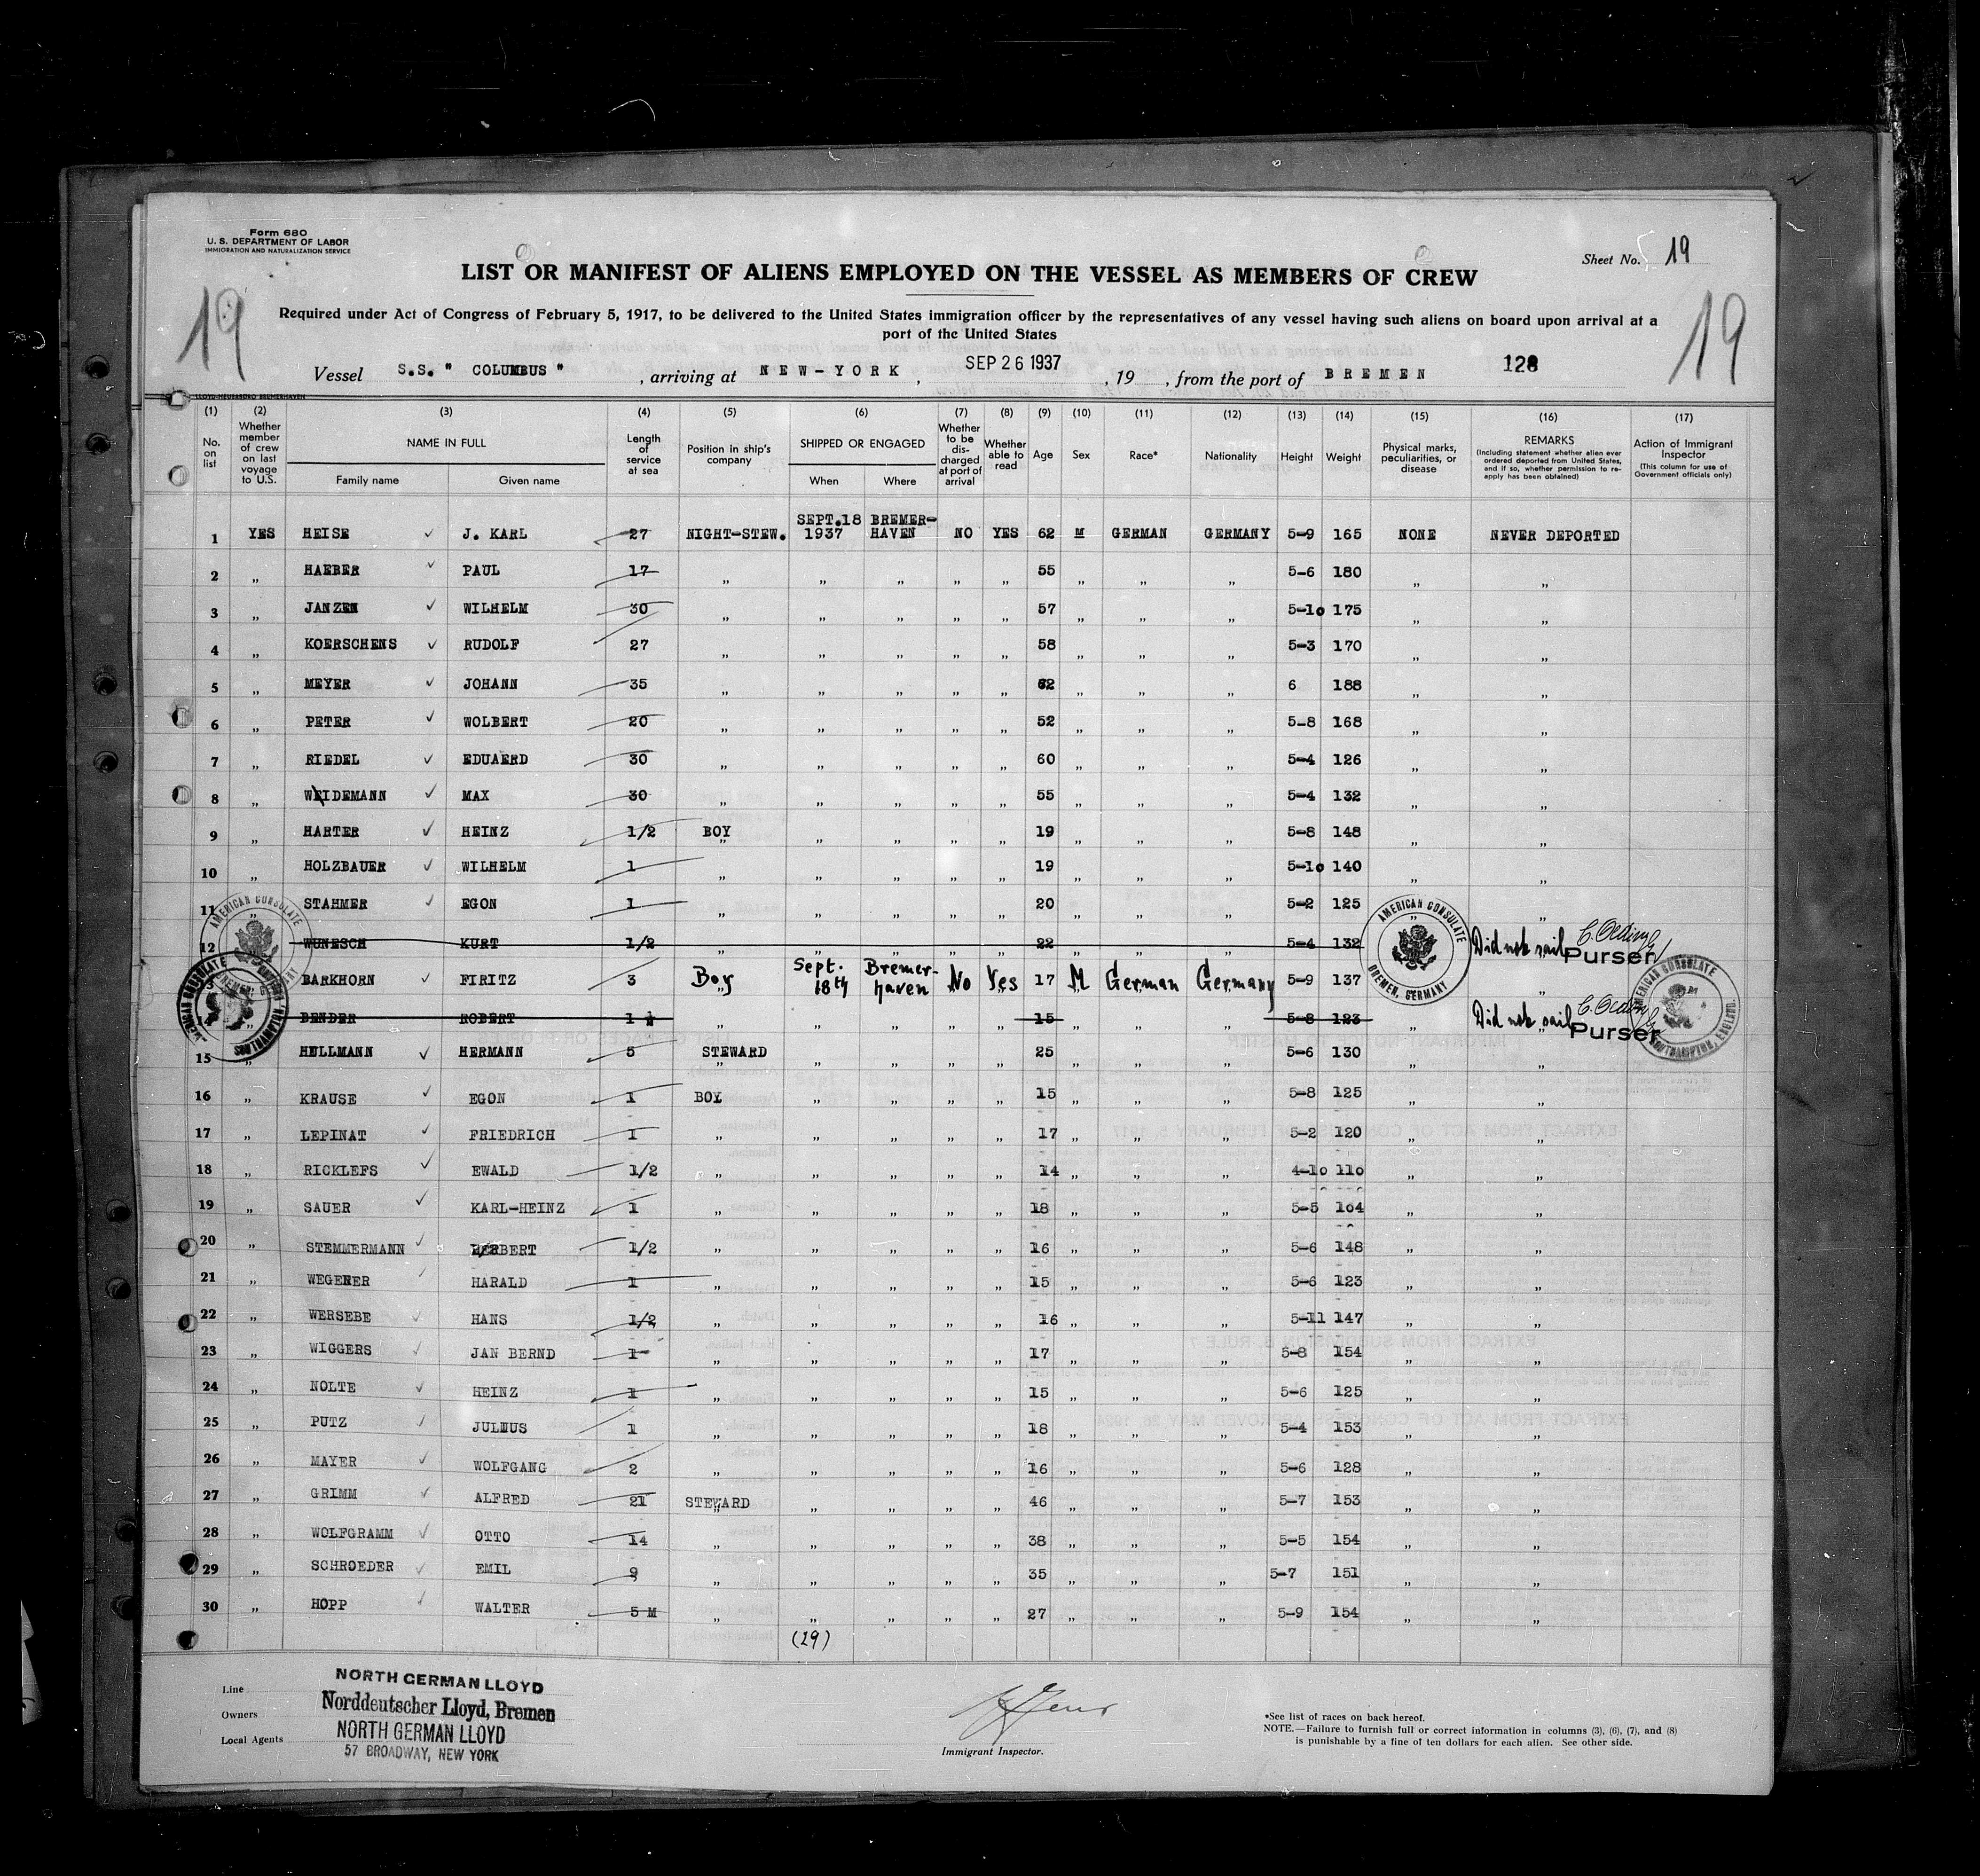 Form 680
U. S. DEPARTMENT OF LABOR
IMMIGRATION AND NATURALIZATION SERVICE
Sheet No. 19
LIST OR MANIFEST OF ALIENS EMPLOYED ON THE VESSEL AS MEMBERS OF CREW
19
19
Required under Act of Congress of February 5, 1917, to be delivered to the United States immigration officer by the representatives of any vessel having such aliens on board upon arrival at a
port of the United States
Vessel S.S. " COLUMBUS " , arriving at NEW-YORK , SEP 26 1937 , 19 , from the port of BREMEN 128
(1) (2) (3) (4) (5) (6) (7) (8) (9) (10) (11) (12) (13) (14) (15) (16) (17)
No. on list
Whether member of crew on last voyage to U.S.
NAME IN FULL
Family name Given name
Length of service at sea
Position in ship's company
SHIPPED OR ENGAGED
When Where
Whether to be discharged at port of arrival
Whether able to read
Age
Sex
Race*
Nationality
Height
Weight
Physical marks, peculiarities, or disease
REMARKS
(Including statement whether alien ever ordered deported from United States, and if so, whether permission to re-apply has been obtained)
Action of Immigrant Inspector
(This column for use of Government officials only)
1 YES HEISE ✓ J. KARL 27 NIGHT-STEW. SEPT.18 1937 BREMER-HAVEN NO YES 62 M GERMAN GERMANY 5-9 165 NONE NEVER DEPORTED
2 „ HAEBER ✓ PAUL 17 „ „ „ „ „ 55 „ „ „ 5-6 180 „ „
3 „ JANZEN ✓ WILHELM 30 „ „ „ „ „ 57 „ „ „ 5-10 175 „ „
4 „ KOERSCHENS ✓ RUDOLF 27 „ „ „ „ „ 58 „ „ „ 5-3 170 „ „
5 „ MEYER ✓ JOHANN 35 „ „ „ „ „ 62 „ „ „ 6 188 „ „
6 „ PETER ✓ WOLBERT 20 „ „ „ „ „ 52 „ „ „ 5-8 168 „ „
7 „ RIEDEL ✓ EDUAERD 30 „ „ „ „ „ 60 „ „ „ 5-4 126 „ „
8 „ WEIDEMANN ✓ MAX 30 „ „ „ „ „ 55 „ „ „ 5-4 132 „ „
9 „ HARTER ✓ HEINZ 1/2 BOY „ „ „ „ 19 „ „ „ 5-8 148 „ „
10 „ HOLZBAUER ✓ WILHELM 1 „ „ „ „ „ 19 „ „ „ 5-10 140 „ „
11 „ STAHMER ✓ EGON 1 „ „ „ „ „ 20 „ „ „ 5-2 125 „ „
12 „ WUNESCH KURT 1/2 „ „ „ „ „ 22 „ „ „ 5-4 132 Did not sail Purser
BARKHORN ✓ FIRITZ 3 Boy Sept. 18th Bremer-haven No Yes 17 M German Germany 5-9 137 „
14 „ BENDER ROBERT 1 „ „ „ „ „ 15 „ „ „ 5-8 123 „ Did not sail Purser
15 „ HELLMANN ✓ HERMANN 5 STEWARD „ „ „ „ 25 „ „ „ 5-6 130 „ „
16 „ KRAUSE ✓ EGON 1 BOY „ „ „ „ 15 „ „ „ 5-8 125 „ „
17 „ LEPINAT ✓ FRIEDRICH 1 „ „ „ „ „ 17 „ „ „ 5-2 120 „ „
18 „ RICKLEFS ✓ EWALD 1/2 „ „ „ „ „ 14 „ „ „ 4-10 110 „ „
19 „ SAUER ✓ KARL-HEINZ 1 „ „ „ „ „ 18 „ „ „ 5-5 104 „ „
20 „ STEMMERMANN ✓ HERBERT 1/2 „ „ „ „ „ 16 „ „ „ 5-6 148 „ „
21 „ WEGENER ✓ HARALD 1 „ „ „ „ „ 15 „ „ „ 5-6 123 „ „
22 „ WERSEBE ✓ HANS 1/2 „ „ „ „ „ 16 „ „ „ 5-11 147 „ „
23 „ WIGGERS ✓ JAN BERND 1 „ „ „ „ „ 17 „ „ „ 5-8 154 „ „
24 „ NOLTE ✓ HEINZ 1 „ „ „ „ „ 15 „ „ „ 5-6 125 „ „
25 „ PUTZ ✓ JULIUS 1 „ „ „ „ „ 18 „ „ „ 5-4 153 „ „
26 „ MAYER ✓ WOLFGANG 2 „ „ „ „ „ 16 „ „ „ 5-6 128 „ „
27 „ GRIMM ✓ ALFRED 21 STEWARD „ „ „ „ 46 „ „ „ 5-7 153 „ „
28 „ WOLFGRAMM ✓ OTTO 14 „ „ „ „ „ 38 „ „ „ 5-5 154 „ „
29 „ SCHROEDER ✓ EMIL 9 „ „ „ „ „ 35 „ „ „ 5-7 151 „ „
30 „ HOPP ✓ WALTER 5 M „ „ „ „ „ 27 „ „ „ 5-9 154 „ „
(29)
AMERICAN CONSULATE
BREMEN, GERMANY
AMERICAN CONSULATE
BREMEN, GERMANY
AMERICAN CONSULATE
SOUTHAMPTON, ENGLAND
AMERICAN CONSULATE
SOUTHAMPTON, ENGLAND
Line NORTH GERMAN LLOYD
Owners Norddeutscher Lloyd, Bremen
Local Agents NORTH GERMAN LLOYD
57 BROADWAY, NEW YORK
Immigrant Inspector.
*See list of races on back hereof.
NOTE.—Failure to furnish full or correct information in columns (3), (6), (7), and (8)
is punishable by a fine of ten dollars for each alien. See other side.